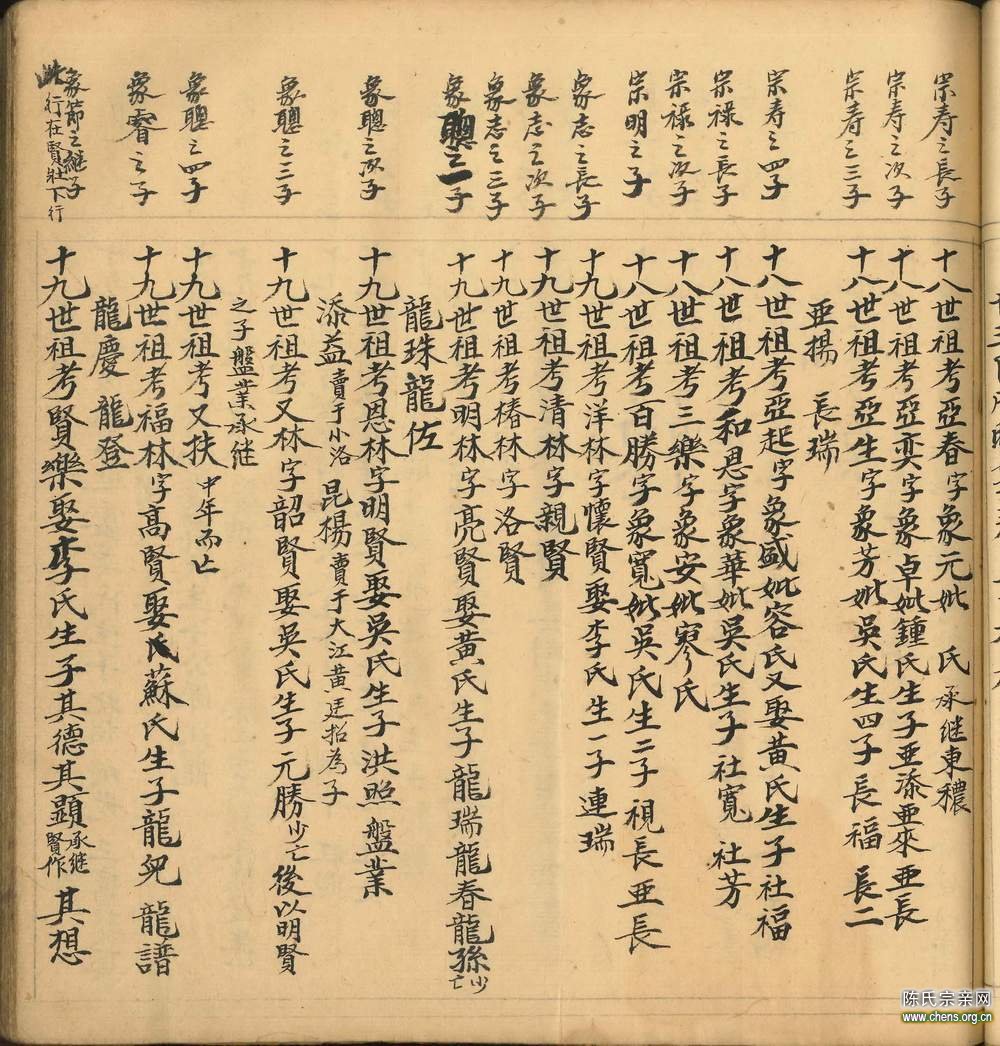 宗寿之長子
十八世祖考亞春字象元妣 氏 承继東穠
宗寿之次子
十八世祖考亞奕字象卓妣鍾氏生子亜添亜來亜長
宗寿之三子
十八世祖考亞生字象芳妣吳氏生四子長福 長二
亜揚 長瑞
宗寿之四子
十八世祖考亞起字象盛妣容氏又娶黃氏生子社福
宗禄之長子
十八世祖考和思字象華妣吳氏生子社寬 社芳
宗禄之次子
十八世祖考三樂字象安妣寥氏
宗明之子
十八世祖考百勝字象寬妣吳氏生二子視長亜長
象志之長子
十九世祖考洋林字懷賢娶李氏生一子連瑞
象志之次子
十九世祖考清林字親賢
象志之三子
十九世祖考椿林字洛賢
象聰之一子
十九世祖考明林字亮賢娶黃氏生子龍瑞龍春龍孫少亡
龍珠龍佐
象聰之次子
十九世祖考恩林字明賢娶吳氏生子洪照盤業
添益賣于小洛 昆楊賣于大江黃廷招為子
象聰之三子
十九世祖考又林字韶賢娶吳氏生子元勝少亡後以明賢
之子盤業承继
象聰之四子
十九世祖考又扶 中年而亡
象睿之子
十九世祖考福林字高賢娶氏蘇氏生子龍兒 龍譜
龍慶 龍登
象節之継子
此行在賢壯下行
十九世祖考賢樂娶李氏生子其德其顕承继賢作 其想
陈氏宗亲网
www.chens.org.cn